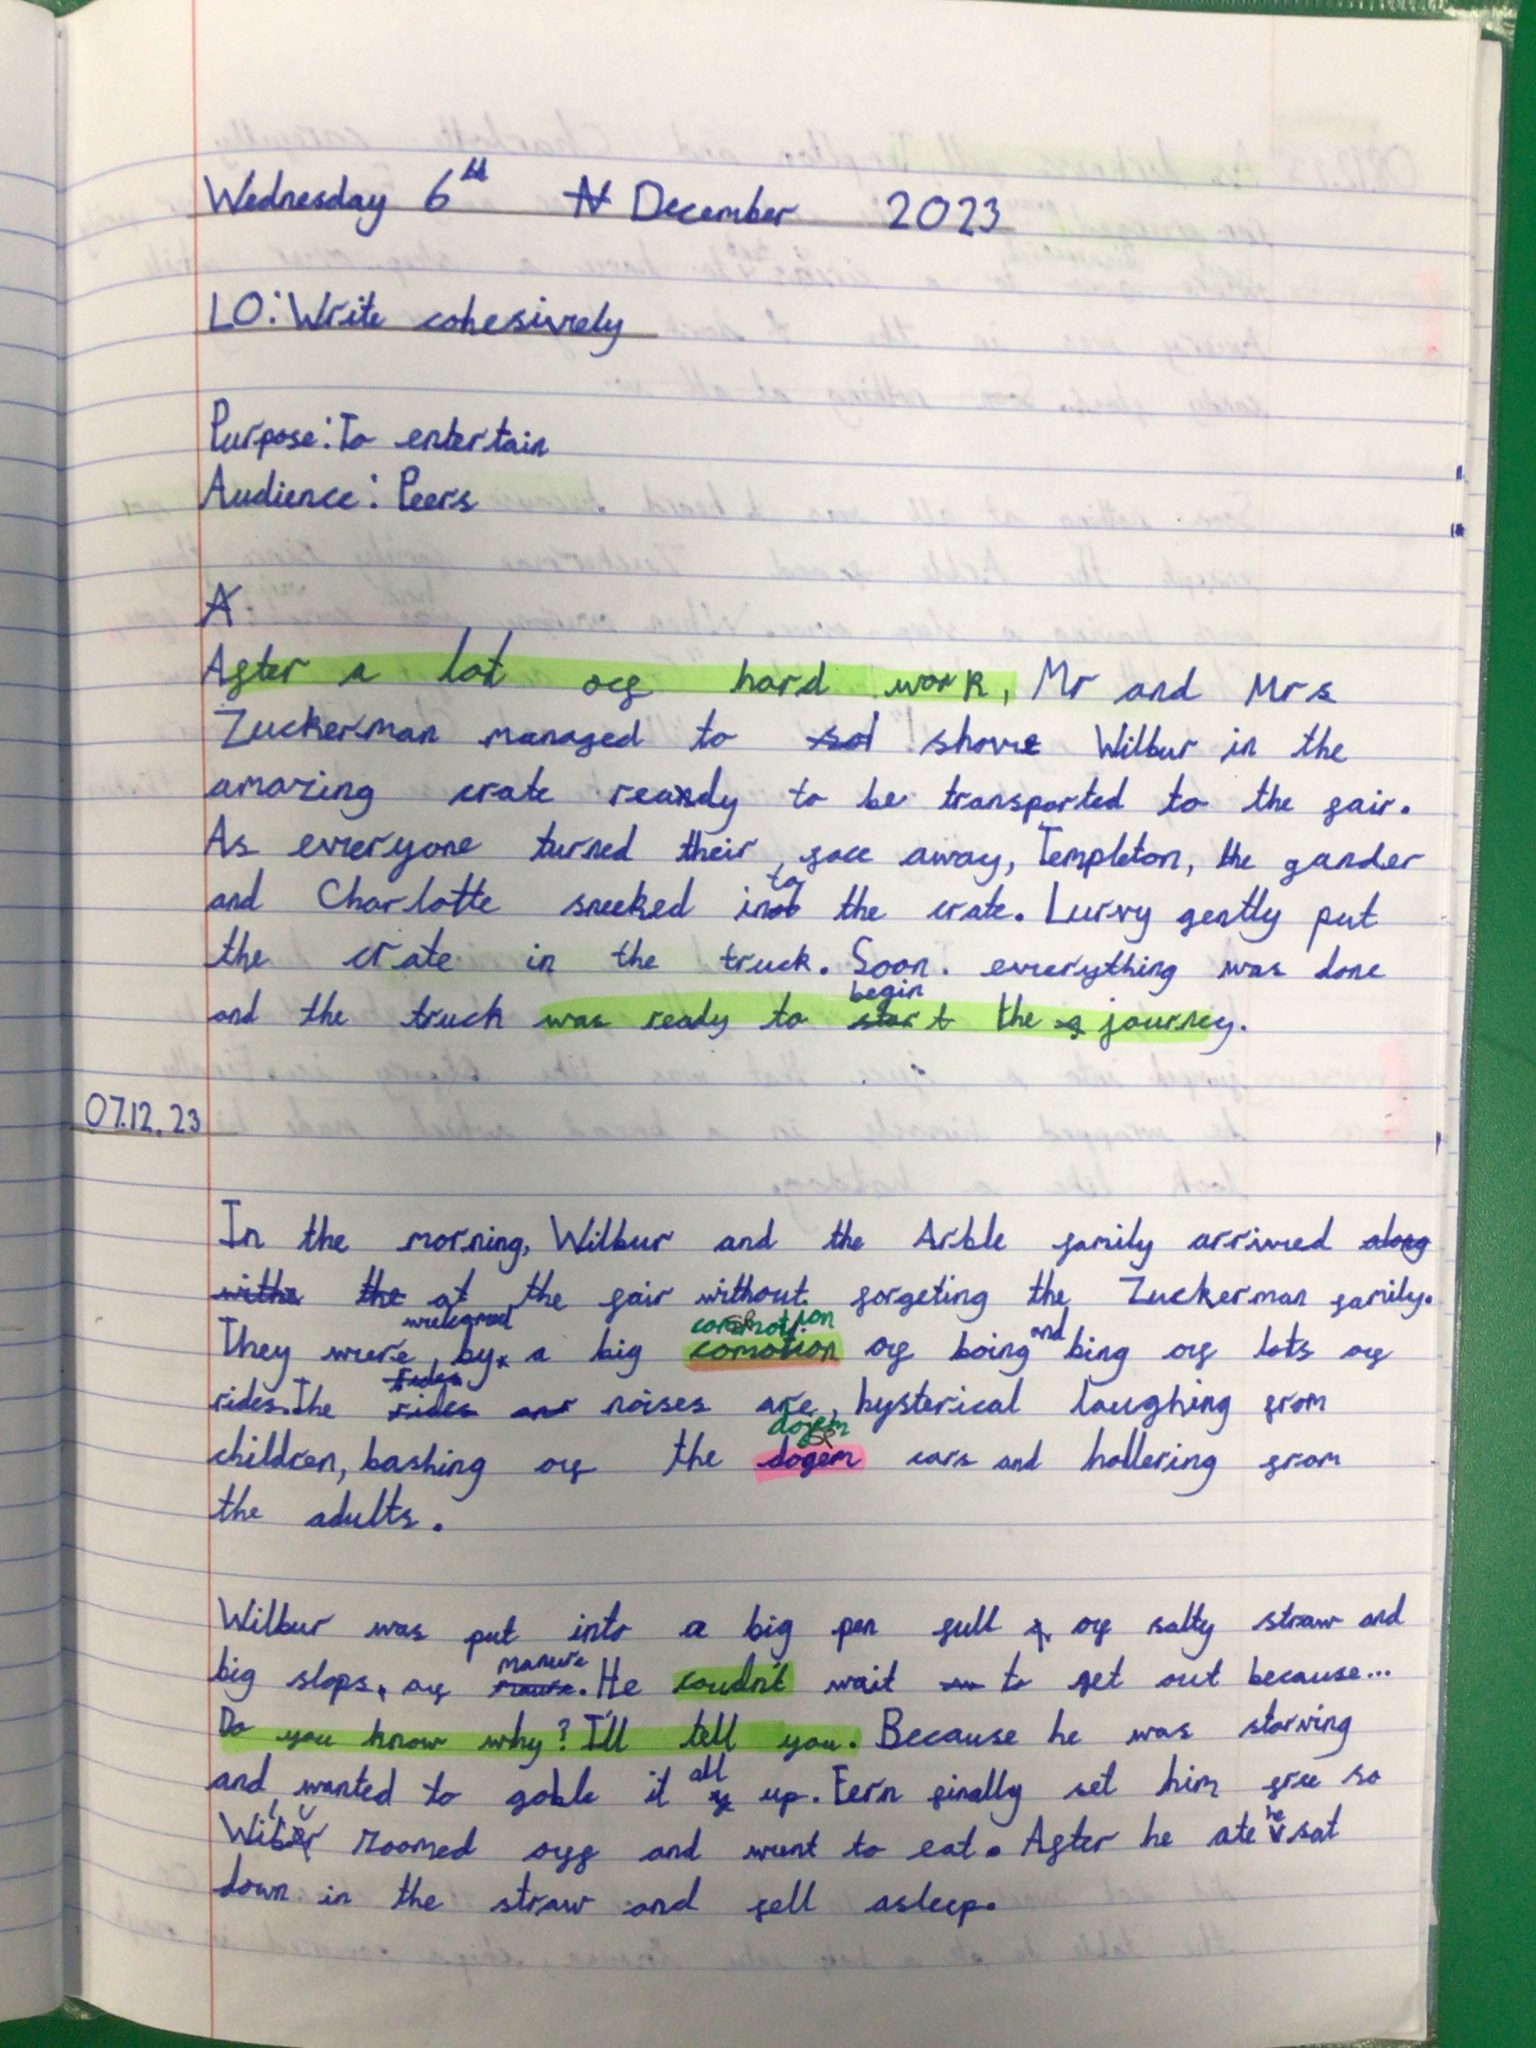 Wednesday 6th December 2023
LO: Write cohesively
Purpose: To entertain
Audience: Peers
A
After a lot off hard work, Mr and Mrs
Zuckerman managed to shove Wilbur in the
amazing crate ready to be transported to the fair.
As everyone turned their face away, Templeton, the gander
and Charlotte sneeked into the crate. Lurvy gently put
the crate in the truck. Soon. everything was done
begin
and the truck was ready to start the journey.
07.12.23
In the morning, Wilbur and the Arble family arrived along
withe the at the fair without forgeting the Zuckerman family.
welcomed commotion
They were, by a big comotion off boing and bing off lots off
rides
rides. The rides and noises are, hysterical laughing from
dogem
children, bashing off the dogem cars and hollering from
the adults.
Wilbur was put into a big pen full off salty straw and
manure
big slops, off. He coudn't wait to get out because...
Do you know why? I'll tell you. Because he was starving
and wanted to goble it all up. Fern finally set him free so
Wilbur zoomed off and went to eat. After he ate he sat
down in the straw and fell asleep.